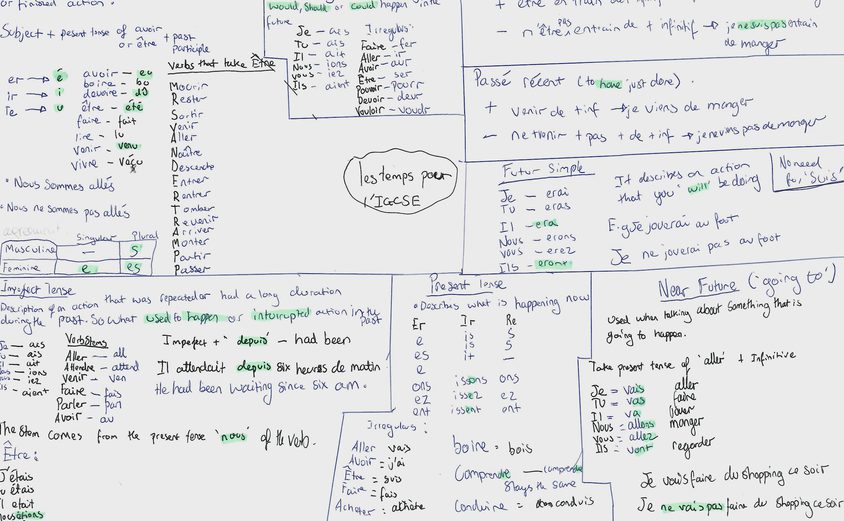 or finished action.
Subject + present tense of avoir
or être
+ past
participle
er → é
ir → i
re → u
avoir — eu
boire — bu
devoire — dû
être — été
faire — fait
lire — lu
venir — venu
vivre — vécu
• Nous sommes allés
• Nous ne sommes pas allés
agreement
Singular Plural
Masculine — s
Feminine e es
Verbs that take Être
Mourir
Rester
Sortir
Venir
Aller
Naître
Descendre
Entrer
Rentrer
Tomber
Revenir
Arriver
Monter
Partir
Passer
would, should or could happen in the
future
Je — ais
Tu — ais
Il — ait
Nous — ions
vous — iez
Ils — aient
Irregulars:
Faire — fer
Aller — ir
Avoir — aur
Être — ser
Pouvoir — pourr
Devoir — devr
Vouloir — voudr
les temps pour
l'IGCSE
+ être en train de + infinitif
— n'être pas en train de + infinitif → je ne suis pas entrain
de manger
Passé récent (to have just done).
+ venir de + inf → je viens de manger
— ne + venir + pas + de + inf → je ne viens pas de manger
Futur Simple
Je — erai
Tu — eras
Il — era
Nous — erons
vous — erez
Ils — eront
It describes an action
that you 'will' be doing
No need
for 'suis'
E.g je jouerai au foot
Je ne jouerai pas au foot
Imperfect tense
Description of an action that was repeated or had a long duration
during the past. So what used to happen or interrupted action in the
past
Je — ais
ais
ait
ions
iez
aient
Verb stems
Aller — all
Attendre — attend
Venir — ven
Faire — fais
Parler — parl
Avoir — av
Imperfect + 'depuis' — had been
Il attendait depuis six heures de matin
He had been waiting since six am.
The stem comes from the present tense 'nous' of the verb.
Être:
J'étais
tu étais
Il était
nous étions
Present tense
• Describes what is happening now
Er Ir Re
e is s
es is s
e it —
ons issons ons
ez issez ez
ent issent ent
Irregulars:
Aller vais
Avoir = j'ai
Être = suis
Faire = fais
Acheter = achète
boire = bois
Comprendre — comprends
stays the same
Conduire = conduis
Near Future ('going to')
Used when talking about something that is
going to happen.
Take present tense of 'aller' + Infinitive
Je = vais
Tu = vas
Il = va
Nous = allons
vous = allez
Ils = vont
aller
faire
jouer
manger
regarder
Je vais faire du shopping ce soir
Je ne vais pas faire du shopping ce soir